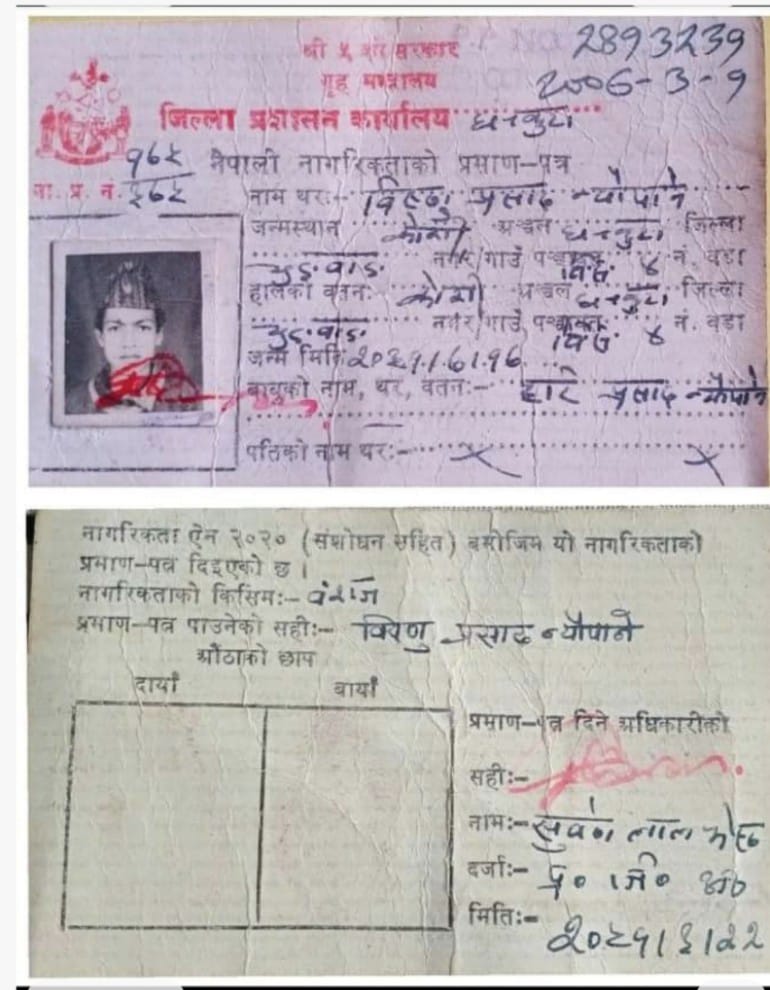 श्री ५ को सरकार
गृह मन्त्रालय
2893239
2006-3-9
जिल्ला प्रशासन कार्यालय धनकुटा
नेपाली नागरिकताको प्रमाण-पत्र
ना. प्र. नं.
नाम थर:- विष्णु प्रसाद न्यौपाने
जन्मस्थान कोशी अञ्चल धनकुटा जिल्ला
नगर/गाउँ पञ्चायत ४ नं. वडा
हालको वतन: कोशी अञ्चल धनकुटा जिल्ला
नगर/गाउँ पञ्चायत ४ नं. वडा
जन्म मिति:
बाबुको नाम, थर, वतन:- हरि प्रसाद न्यौपाने
पतिको नाम थर:-
नागरिकता ऐन २०२० (संशोधन सहित) बमोजिम यो नागरिकताको
प्रमाण-पत्र दिइएको छ।
नागरिकताको किसिम:- वंशज
प्रमाण-पत्र पाउनेको सही:- विष्णु प्रसाद न्यौपाने
औंठाको छाप
दायाँ बायाँ
प्रमाण-पत्र दिने अधिकारीको
सही:-
नाम:- लाल
दर्जा:- प्र० जि० अ०
मिति:-